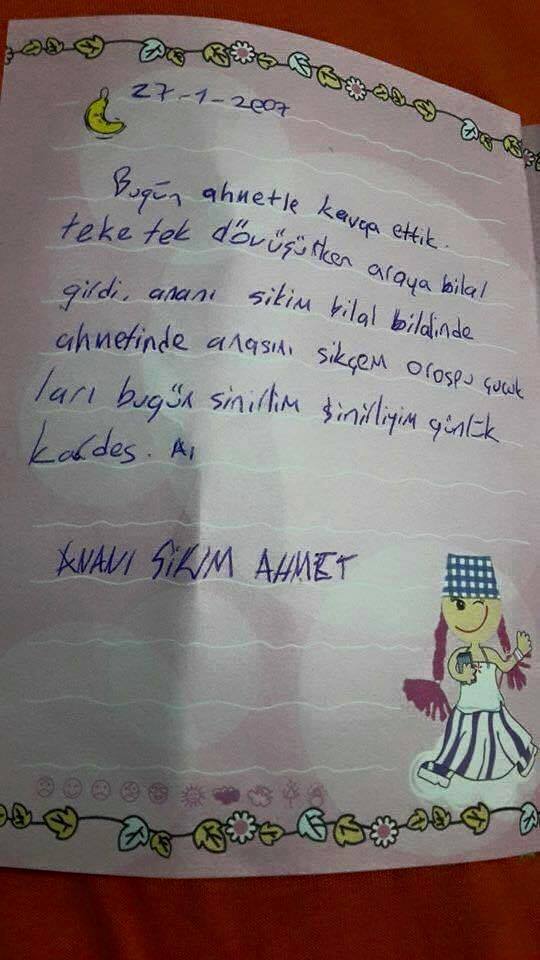 27-1-2007
Bugün ahmetle kavga ettik.
teke tek dövüşürken araya bilal
girdi. ananı sikim bilal bilalinde
ahmetinde anasını sikçem orospu çocuk
ları bugün sinirliim sinirliyim günlük
kardeş. Al
ANANI SİKİM AHMET